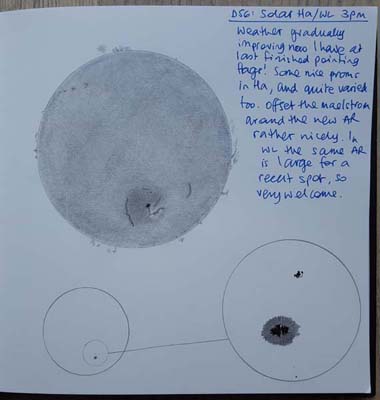 D56: Solar Ha/WL 3pm
Weather gradually
improving now I have at
last finished painting
Some nice proms
in Ha, and quite varied
too. Offset the maelstrom
around the new AR
rather nicely. In
WL the same AR
is large for a
recent spot, so
very welcome.